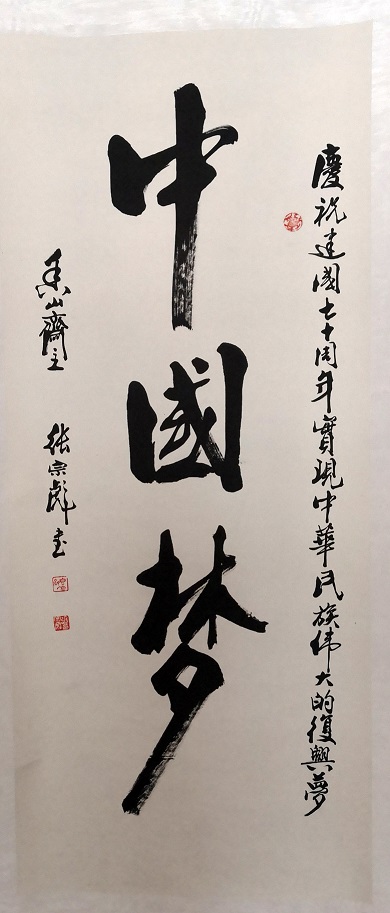 慶祝建國七十周年實現中華民族伟大的復興夢
中國梦
香山齋主 張宗彪書